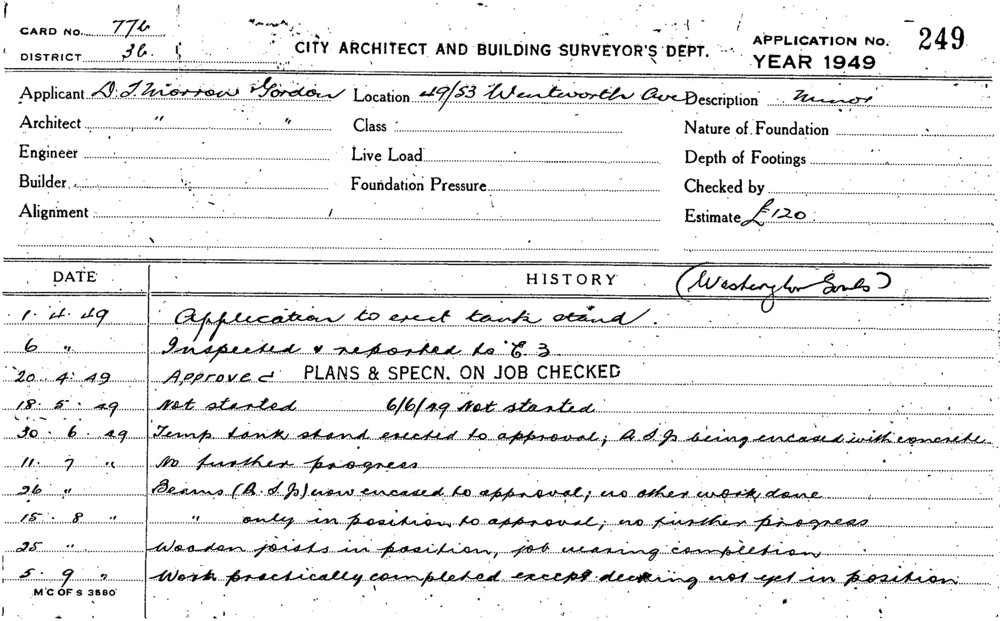 CARD No. 776
DISTRICT 36
CITY ARCHITECT AND BUILDING SURVEYOR'S DEPT.
APPLICATION No. 249
YEAR 1949
Applicant D. T. Morrow & Gordon Location 49/53 Wentworth Ave Description Minor
Architect " " Class Nature of Foundation
Engineer Live Load Depth of Footings
Builder Foundation Pressure Checked by
Alignment Estimate £120
DATE HISTORY (Washington Souls)
1. 4. 49 Application to erect tank stand.
6 " Inspected & reported to E.3
20. 4. 49 Approved PLANS & SPECN. ON JOB CHECKED
18. 5. 49 Not started 6/6/49 Not started
30. 6. 49 Temp tank stand erected to approval; R.S.Js being encased with concrete
11. 7 " No further progress
26 " Beams (R.S.Js) now encased to approval; no other work done
15. 8 " " only in position to approval; no further progress
25 " Wooden joists in position, job nearing completion
5. 9 " Work practically completed except decking not yet in position
M C OF S 3580